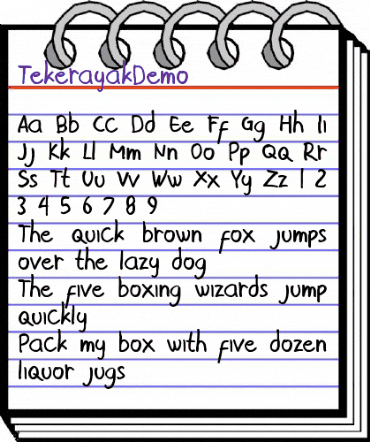 TekerayakDemo
Aa Bb Cc Dd Ee Ff Gg Hh Ii
Jj Kk Ll Mm Nn Oo Pp Qq Rr
Ss Tt Uu Vv Ww Xx Yy Zz 1 2
3 4 5 6 7 8 9
The quick brown fox jumps
over the lazy dog
The five boxing wizards jump
quickly
Pack my box with five dozen
liquor jugs